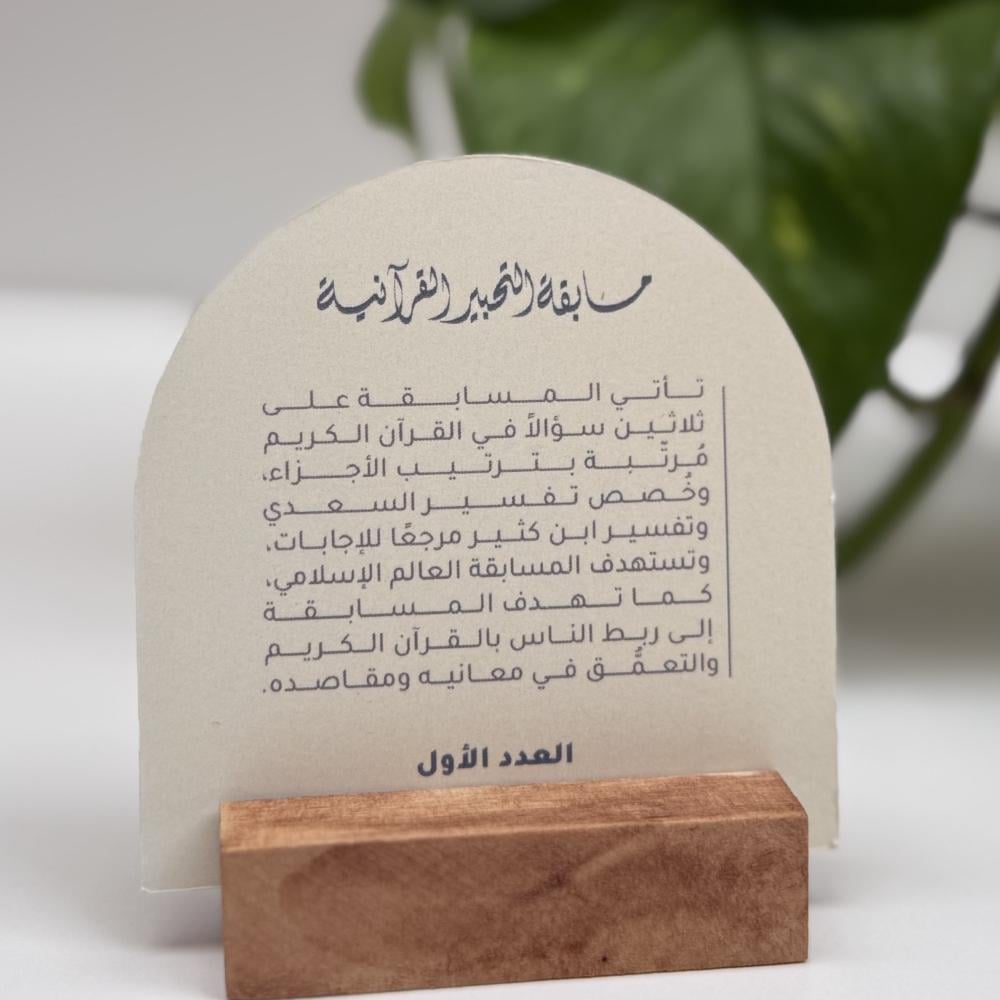 مسابقة التحبير القرآنية
تأتي المسابقة على
ثلاثين سؤالاً في القرآن الكريم
مُرتّبة بترتيب الأجزاء،
وخُصص تفسير السعدي
وتفسير ابن كثير مرجعًا للإجابات،
وتستهدف المسابقة العالم الإسلامي،
كما تهدف المسابقة
إلى ربط الناس بالقرآن الكريم
والتعمُّق في معانيه ومقاصده.
العدد الأول